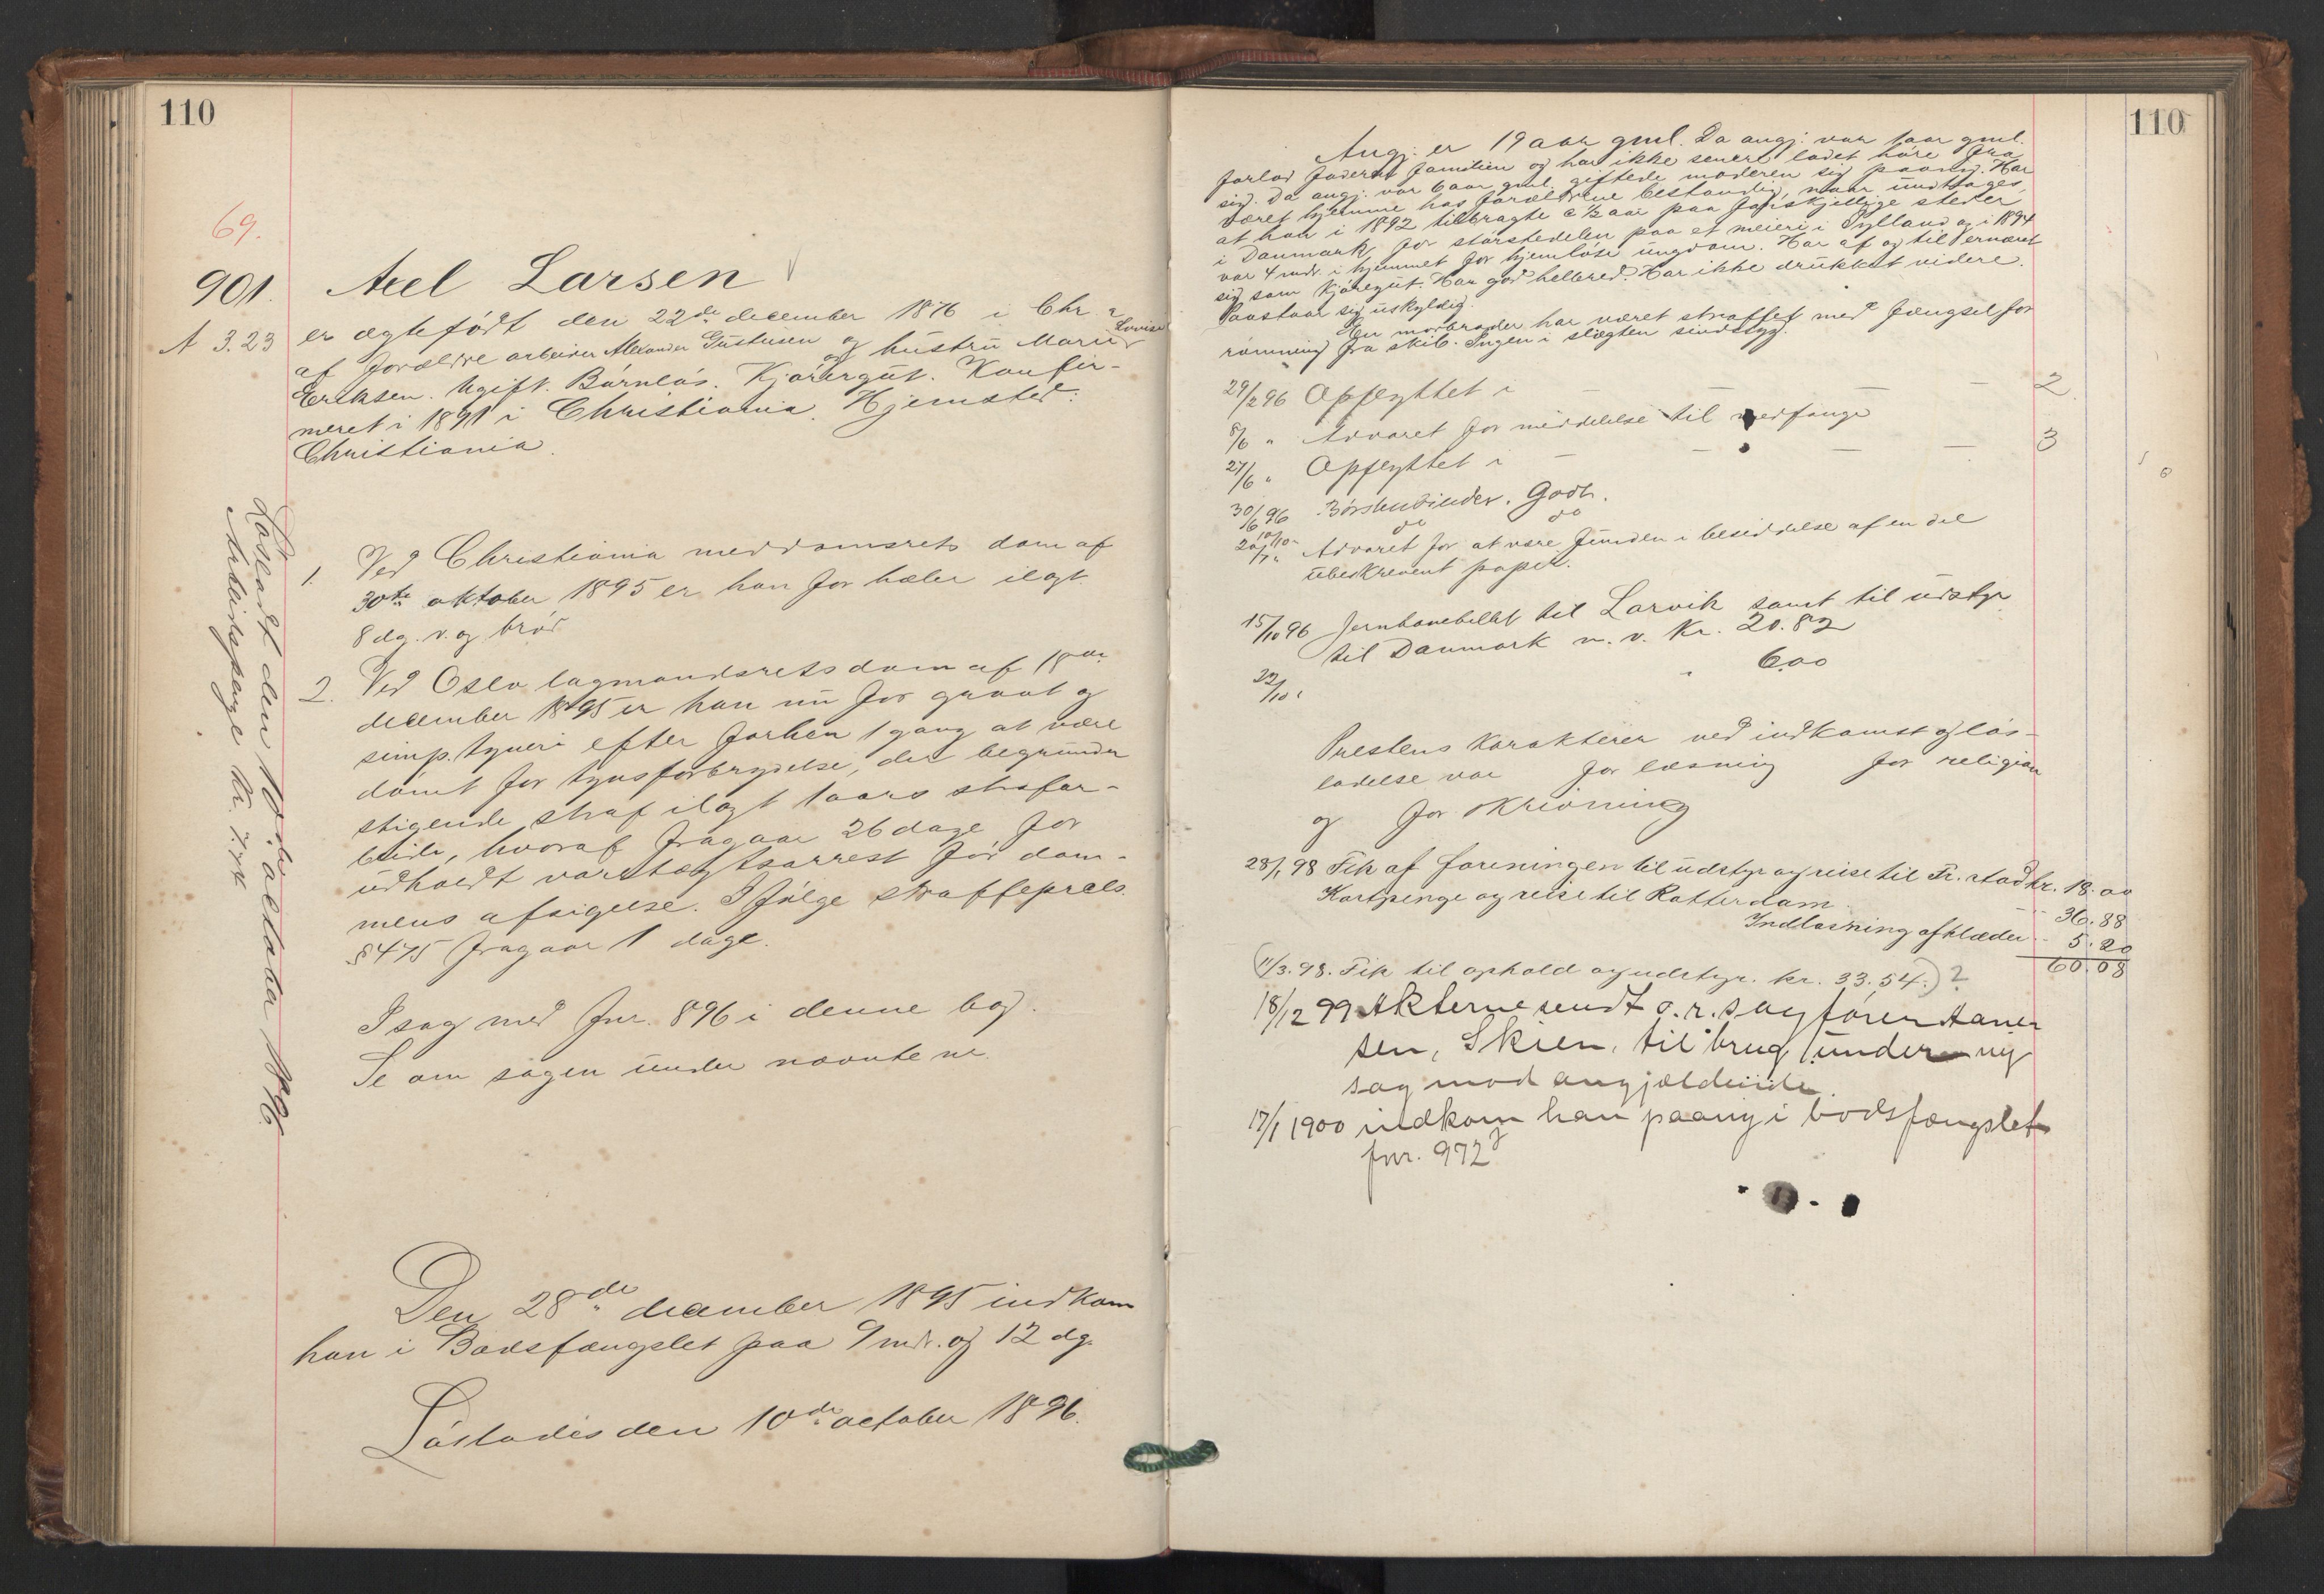 110
69.
901. Axel Larsen
A 3.23 er ægtefødt den 22de december 1876 i Chr.a
af forældre arbeider Alexander Gustusen og hustru Marie Lovise
Eriksen. Ugift. Børnløs. Kjøregut. Konfir-
meret i 1891 i Christiania. Hjemsted:
Christiania.
1. Ved Christiania meddomsrets dom af
30te oktober 1895 er han for hæleri ilagt
8 dg. v. og brød.
2. Ved Oslo lagmandsrets dom af 18de
december 1895 er han nu for grovt og
simp. tyveri efter forhen 1 gang at være
dømt for tyvsforbrydelse, der begrunder
stigende straf ilagt 1 aars strafar-
beide, hvoraf fragaar 26 dage for
udholdt varetægtsarrest før dom-
mens afsigelse. Ifølge straffeprcls.
§ 475 fragaar 1 dage.
I sag med fnr. 896 i denne bog.
Se om sagen under nævnte nr.
Den 28de december 1895 indkom
han i Bodsfængslet paa 9 mdr. og 12 dg.
Løslades den 10de october 1896.
Løsladt den 10de october 1896.
Arbeidspenge kr. 7.74
110
Angj. er 19 aar gml. Da angj. var 1 aar gml.
forlod faderen familien og har ikke senere ladet høre fra
sig. Da angj. var 6 aar gml. giftede moderen sig paany. Har
været hjemme hos forældrene bestandig, naar undtages,
at han i 1892 tilbragte c 1/2 aar paa forskjellige steder
i Danmark, for størstedelen paa et meieri i Jylland og i 1894
var 4 mdr. i hjemmet for hjemløse ungdom. Har af og til ernæret
sig som kjøregut. Har god helbred. Har ikke drukket videre.
Paastaar sig uskyldig.
En morbroder har været straffet med fængsel for
rømning fra skib. Ingen i slægten sindssyg.
29/2 96 Opflyttet i — — — — 2
8/6 " Advaret for meddelelse til medfange
27/6 " Opflyttet i — — — — 3
30/6 96 Børstenbinder. Godt.
10/10 - do do
20/7 " Advaret for at være funden i besiddelse af en del
ubeskrevent papir.
15/10 96 Jernbanebillet til Larvik samt til udstyr
til Danmark m. v. Kr. 20.82
22/10 " " 6.00
Prestens karakterer ved indkomst og løs-
ladelse var for læsning for religion
og for skrivning
28/1 98 Fik af foreningen til udstyr og reise til Fr.stad kr. 18.00
Kostpenge og reise til Rotterdam -- 36.88
Indløsning af klæder -- 5.20
60.08
(1/3. 98. Fik til ophold og udstyr. kr. 33.54.) ?
18/12 99 Akterne sendt o.r.sagfører
sen, Skien, til brug under ny
sag mod angjældende.
17/1 1900 indkom han paany i bodsfængslet
fnr. 972